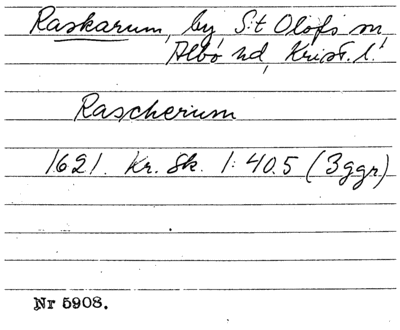 Raskarum, by, S:t Olofs sn,
Albo hd, Krist. l.
Rascherum
1621. Kr. Sk. 1:405 (3ggr)
Nr 5908.